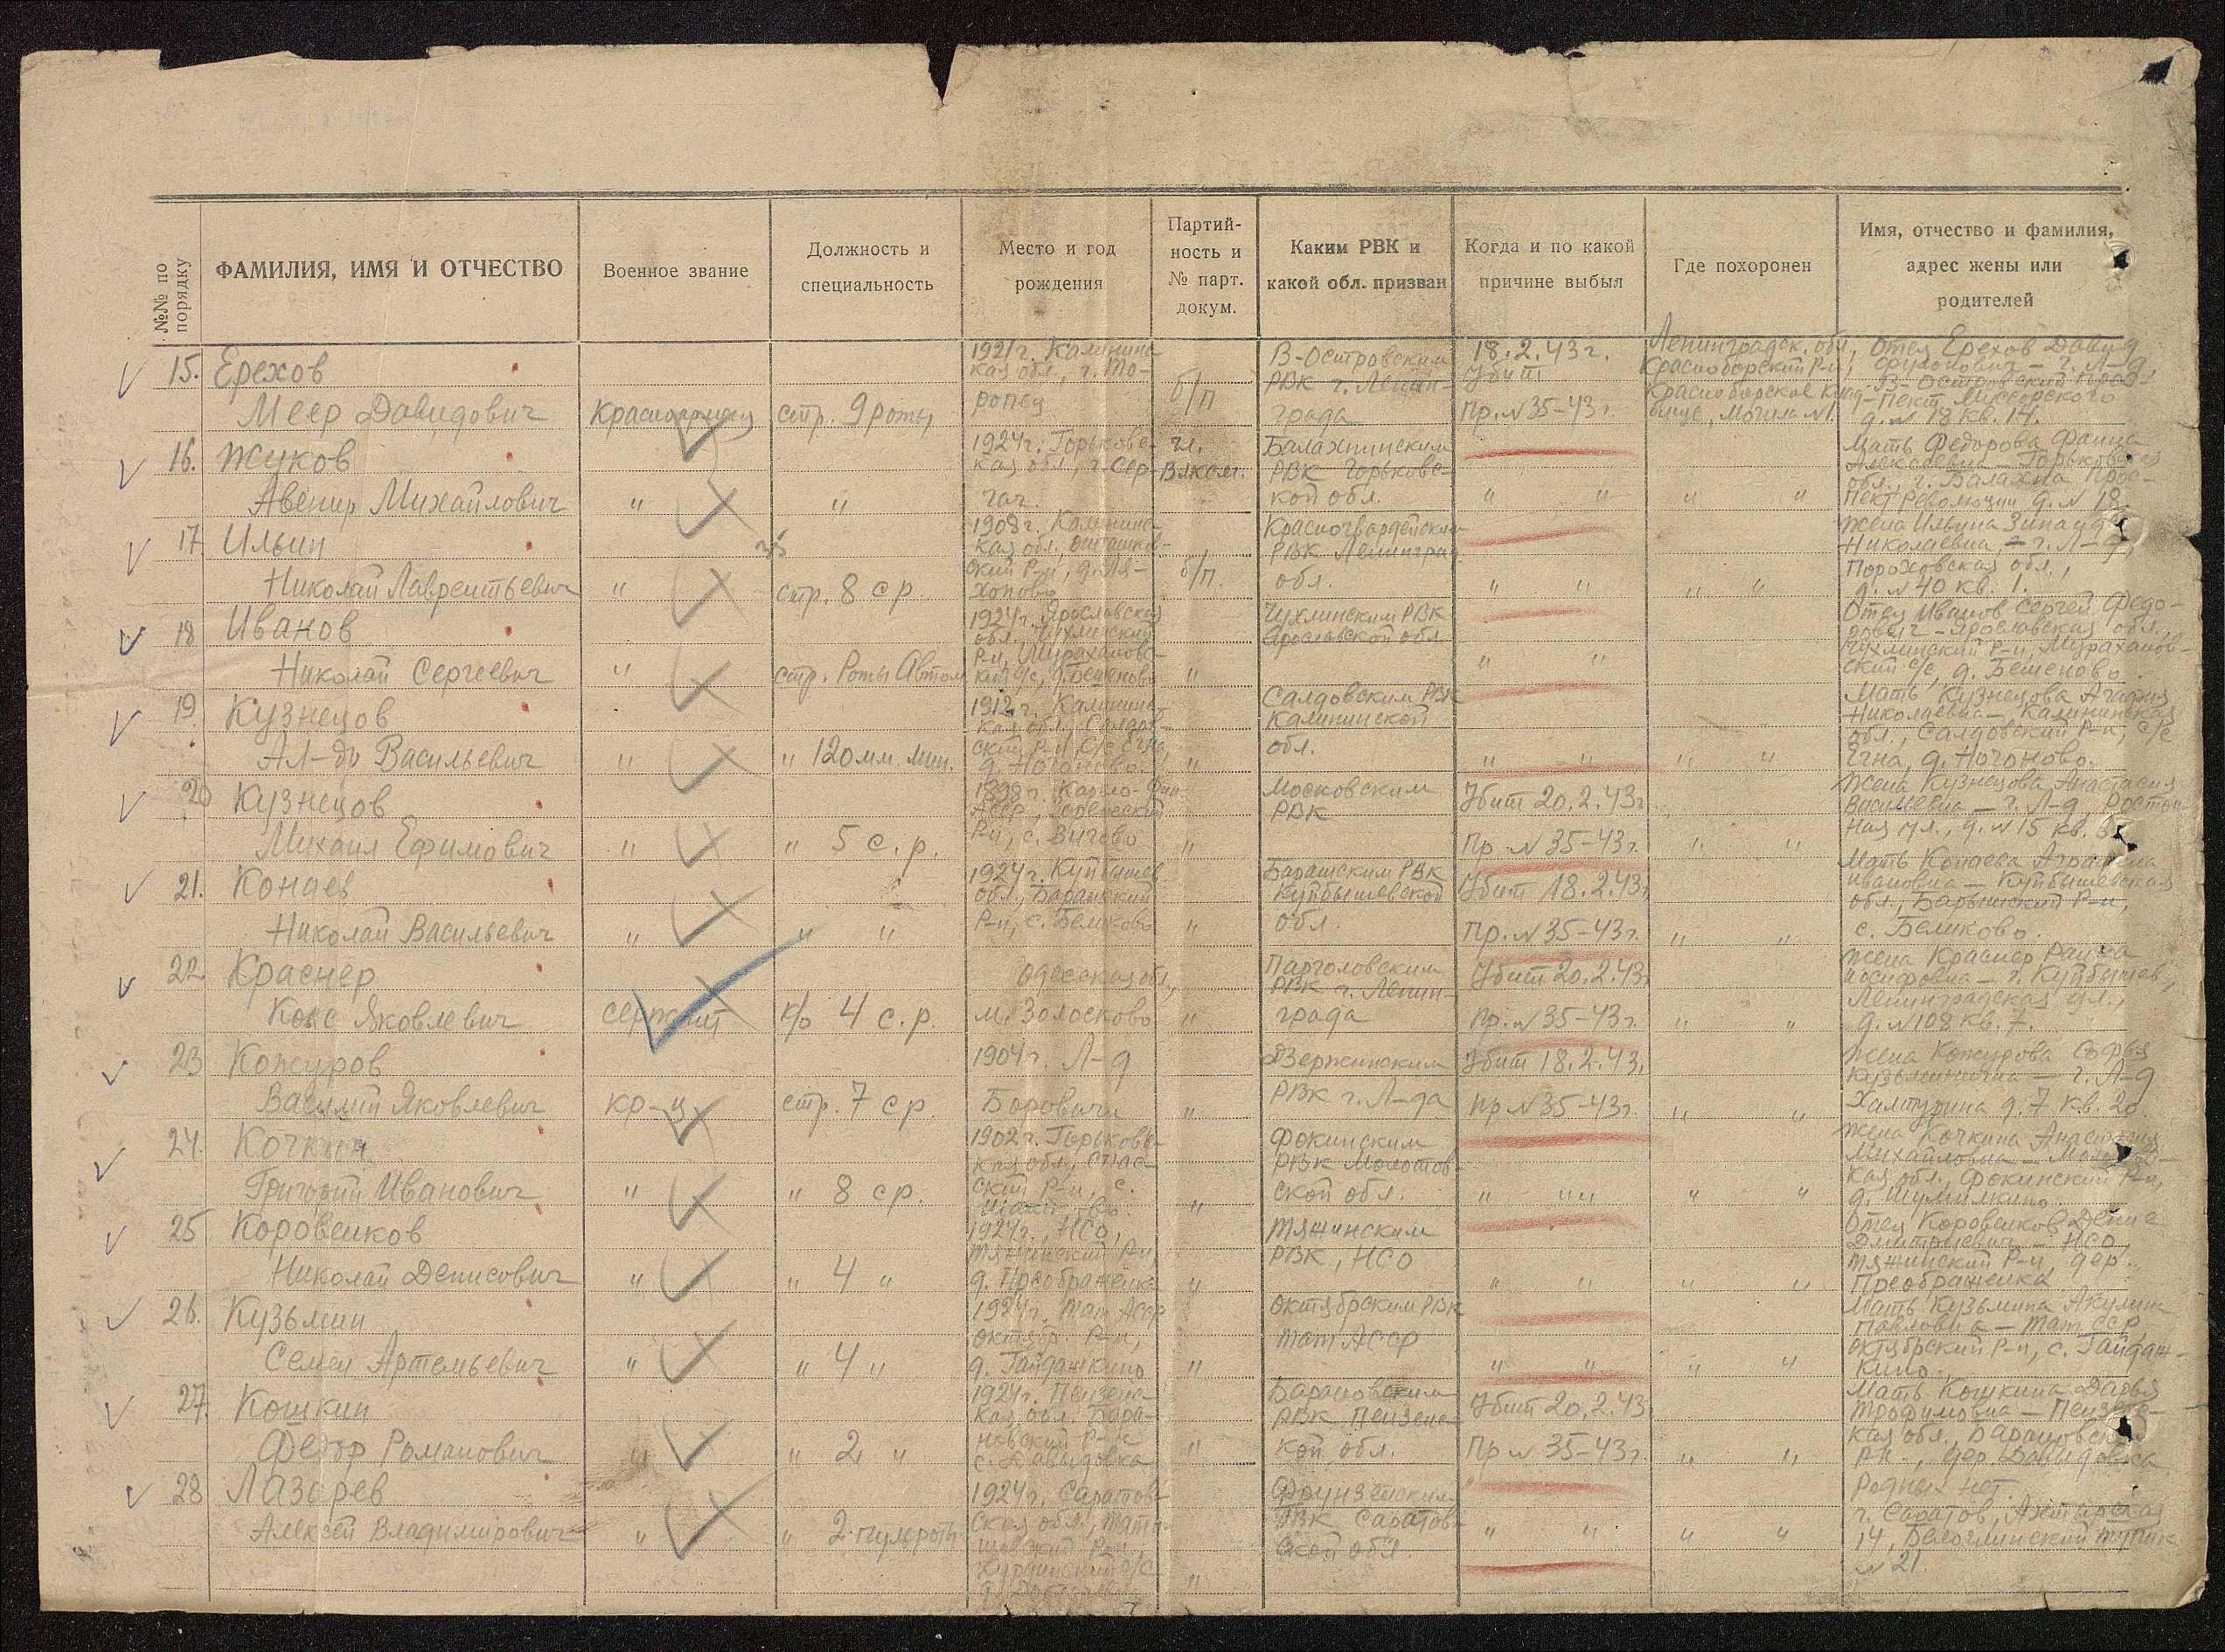 №№ по порядку
ФАМИЛИЯ, ИМЯ И ОТЧЕСТВО
Военное звание
Должность и специальность
Место и год рождения
Партий-
ность и
№ парт.
докум.
Каким РВК и
какой обл. призван
Когда и по какой
причине выбыл
Где похоронен
Имя, отчество и фамилия,
адрес жены или
родителей
15. Ерехов
Меер Давидович
Красноармеец
стр. 9 роты
1921 г. Калининс-
кая обл., г. То-
ропец
б/п
В-Островским
РВК г. Ленин-
града
18.2.43 г.
Убит
Пр. № 35-43 г.
Ленинградск. обл.,
Красноборский Р-н,
Красноборское клад-
бище, Могила №1.
Отец Ерехов Давид
г. Л-д,
В-Островский Прос-
пект Мусоргского
д. № 18 кв. 14.
16. Жуков
Авенир Михайлович
"
"
1924 г. Горьковс-
кая обл., г. Сер-
гач.
чл.
Влксм.
Балахнинским
РВК Горьковс-
кой обл.
" "
" "
Мать Федорова Фаина
Алексеевна - Горьковская
обл., г. Балахна Прос-
пект Революции д. № 18.
17 Ильин
Николай Лаврентьевич
"
стр. 8 ср
1908 г. Калининс-
кая обл., Осташков-
ский Р-н,
б/п.
Красногвардейским
РВК Ленинград.
обл.
" "
" "
Жена Ильина Зинаида
Николаевна, - г. Л-д,
Пороховская
д. № 40 кв. 1.
18 Иванов
Николай Сергеевич
"
стр. Роты Автом
1924 г. Ярославская
обл. Чухлинский
Р-н, Мирахановс-
кий с/с, д. Бешеново
"
Чухлинским РВК
Ярославской обл
" "
Отец Иванов Сергей Федо-
рович - Ярославская обл.,
Чухлинский Р-н, Мираханов-
ский с/с, д. Бешеново.
19. Кузнецов
Ал-др Васильевич
"
" 120 мм. мин.
1912 г. Калининс-
кая обл. Салдов-
ский Р-н с/с Ечна,
д. Ногоново.
"
Салдовским РВК
Калининской
обл.
" "
" "
Мать Кузнецова Агафия
Николаевна - Калининская
обл., Салдовский Р-н, с/с
Ечна, д. Ногоново.
20 Кузнецов
Михаил Ефимович
"
" 5 с. р.
1898 г. Карело-Фин.
Р-н, с. Вигово
"
Московским
РВК
Убит 20.2.43 г.
Пр № 35-43 г.
" "
Жена Кузнецова Анастасия
Васильевна - г. Л-д,
ная ул., д. № 15 кв.
21. Конаев
Николай Васильевич
"
" "
1924 г. Куйбышев.
обл., Барашский
Р-н, с. Беликово
"
Барашским РВК
Куйбышевской
обл.
Убит 18.2.43 г
Пр. № 35-43 г.
" "
Мать Конаева Аграфена
Ивановна - Куйбышевская
обл., Барышский Р-н,
с. Беликово.
22. Краснер
Яковлевич
сержант
к/о 4 с. р.
Одесская обл.,
м. Золосково
"
Парголовским
РВК г. Ленин-
града
Убит 20.2.43
Пр. № 35-43 г.
" "
Жена Краснер Раиса
Иосифовна - г. Куйбышев,
Ленинградская ул.,
д. № 108 кв. 7.
23 Кожуров
Василий Яковлевич
кр-ц
стр. 7 ср.
1904 г. Л-д
Боровичи
"
Дзержинским
РВК г. Л-да
Убит 18.2.43.
Пр № 35-43 г.
" "
Жена Кожурова Софья
Кузьминична - г. Л-д
Халтурина д. 7 кв. 20.
24. Кочкин
Григорий Иванович
"
" 8 ср.
1902 г. Горьковс-
кая обл., Спас-
ский Р-н, с.
"
Фокинским
РВК Молотов-
ской обл.
" " "
" "
Жена Кочкина Анастасия
Михайловна -
кая обл., Фокинский Р-н,
д. Шумилкино
25 Коровсиков
Николай Денисович
"
" 4 "
1924 г., НСО,
Тяжинский Р-н,
д. Преображенка
"
Тяжинским
РВК, НСО
" "
" "
Отец Коровсиков Денис
Дмитриевич - НСО,
Тяжинский Р-н, дер.
Преображенка
26. Кузьмин
Семен Артемьевич
"
" 4 "
1924 г. Тат Асср
Октябр. Р-н,
д. Гайданкино
"
Октябрским РВК
Тат АССР
" "
" "
Мать Кузьмина Акулина
Павловна - Тат сср,
Октябрский Р-н, с. Гайдан-
кино.
27. Кошкин
Федор Романович
"
" 2 "
1924 г. Пензенс-
кая обл. Бара-
новский Р-н
с. Давыдовка
"
Барановским
РВК Пензенс-
кой обл.
Убит 20.2.43
Пр № 35-43 г.
" "
Мать Кошкина Дарья
Трофимовна - Пензенс-
кая обл., Барановский
РК-, дер Давыдовка
28 Лазарев
Алексей Владимирович
"
" 2-пульроты
1924 г. Саратов-
ская обл.,
"
Фрунзенским
РВК Саратов-
ской обл.
" "
" "
Родных нет.
г. Саратов, Ахтырская
14, Белоглинский тупик
№ 21